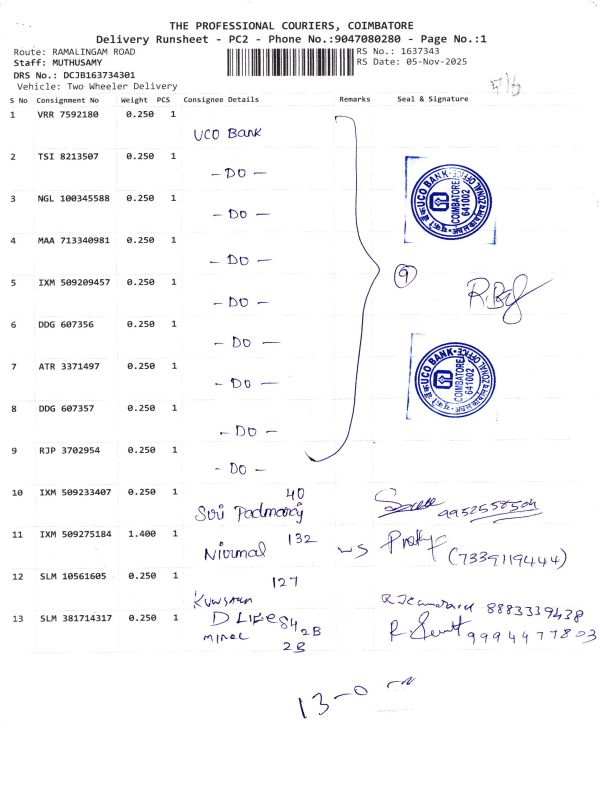 THE PROFESSIONAL COURIERS, COIMBATORE
Delivery Runsheet - PC2 - Phone No.:9047080280 - Page No.:1
Route: RAMALINGAM ROAD
RS No.: 1637343
Staff: MUTHUSAMY
RS Date: 05-Nov-2025
DRS No.: DCJB163734301
Vehicle: Two Wheeler Delivery
S No Consignment No Weight PCS Consignee Details Remarks Seal & Signature
1 VRR 7592180 0.250 1
UCO Bank
2 TSI 8213507 0.250 1
- DO -
3 NGL 100345588 0.250 1
- DO -
4 MAA 713340981 0.250 1
- DO -
5 IXM 509209457 0.250 1
- DO -
6 DDG 607356 0.250 1
- DO -
7 ATR 3371497 0.250 1
- DO -
8 DDG 607357 0.250 1
- DO -
9 RJP 3702954 0.250 1
- DO -
9
UCO BANK ZONAL OFFICE
COIMBATORE
641002
UCO BANK ZONAL OFFICE
COIMBATORE
641002
10 IXM 509233407 0.250 1
40
Siri
11 IXM 509275184 1.400 1
Nirmal 132 WS
(7339119444)
12 SLM 10561605 0.250 1
127
8883339438
13 SLM 381714317 0.250 1
D LIFE 84 2B
2B
9994477803
13-0